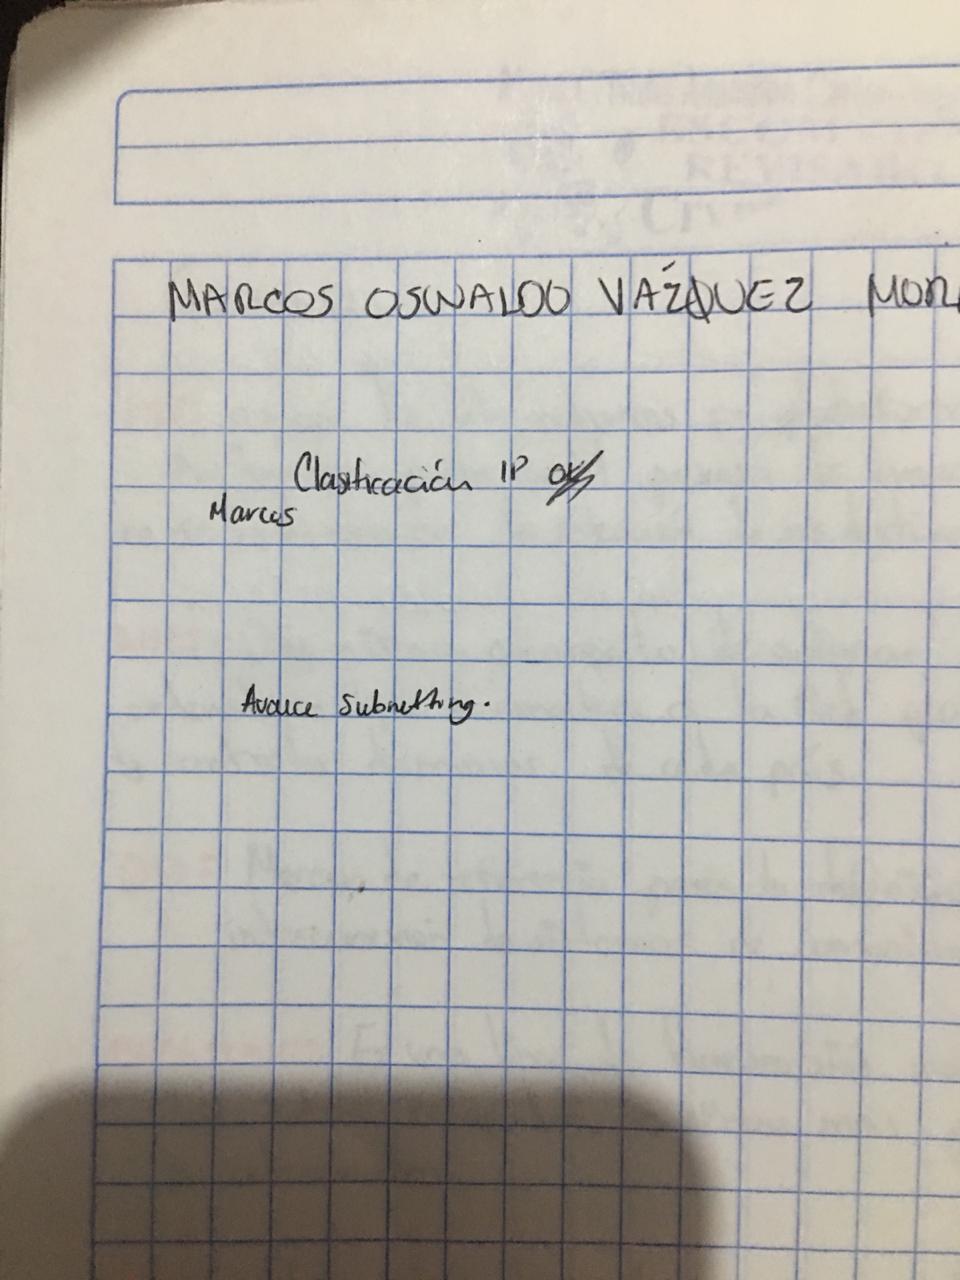 MARCOS OSWALDO VÁZQUEZ
Clasificación IP
Marcos
Avance subnetting.